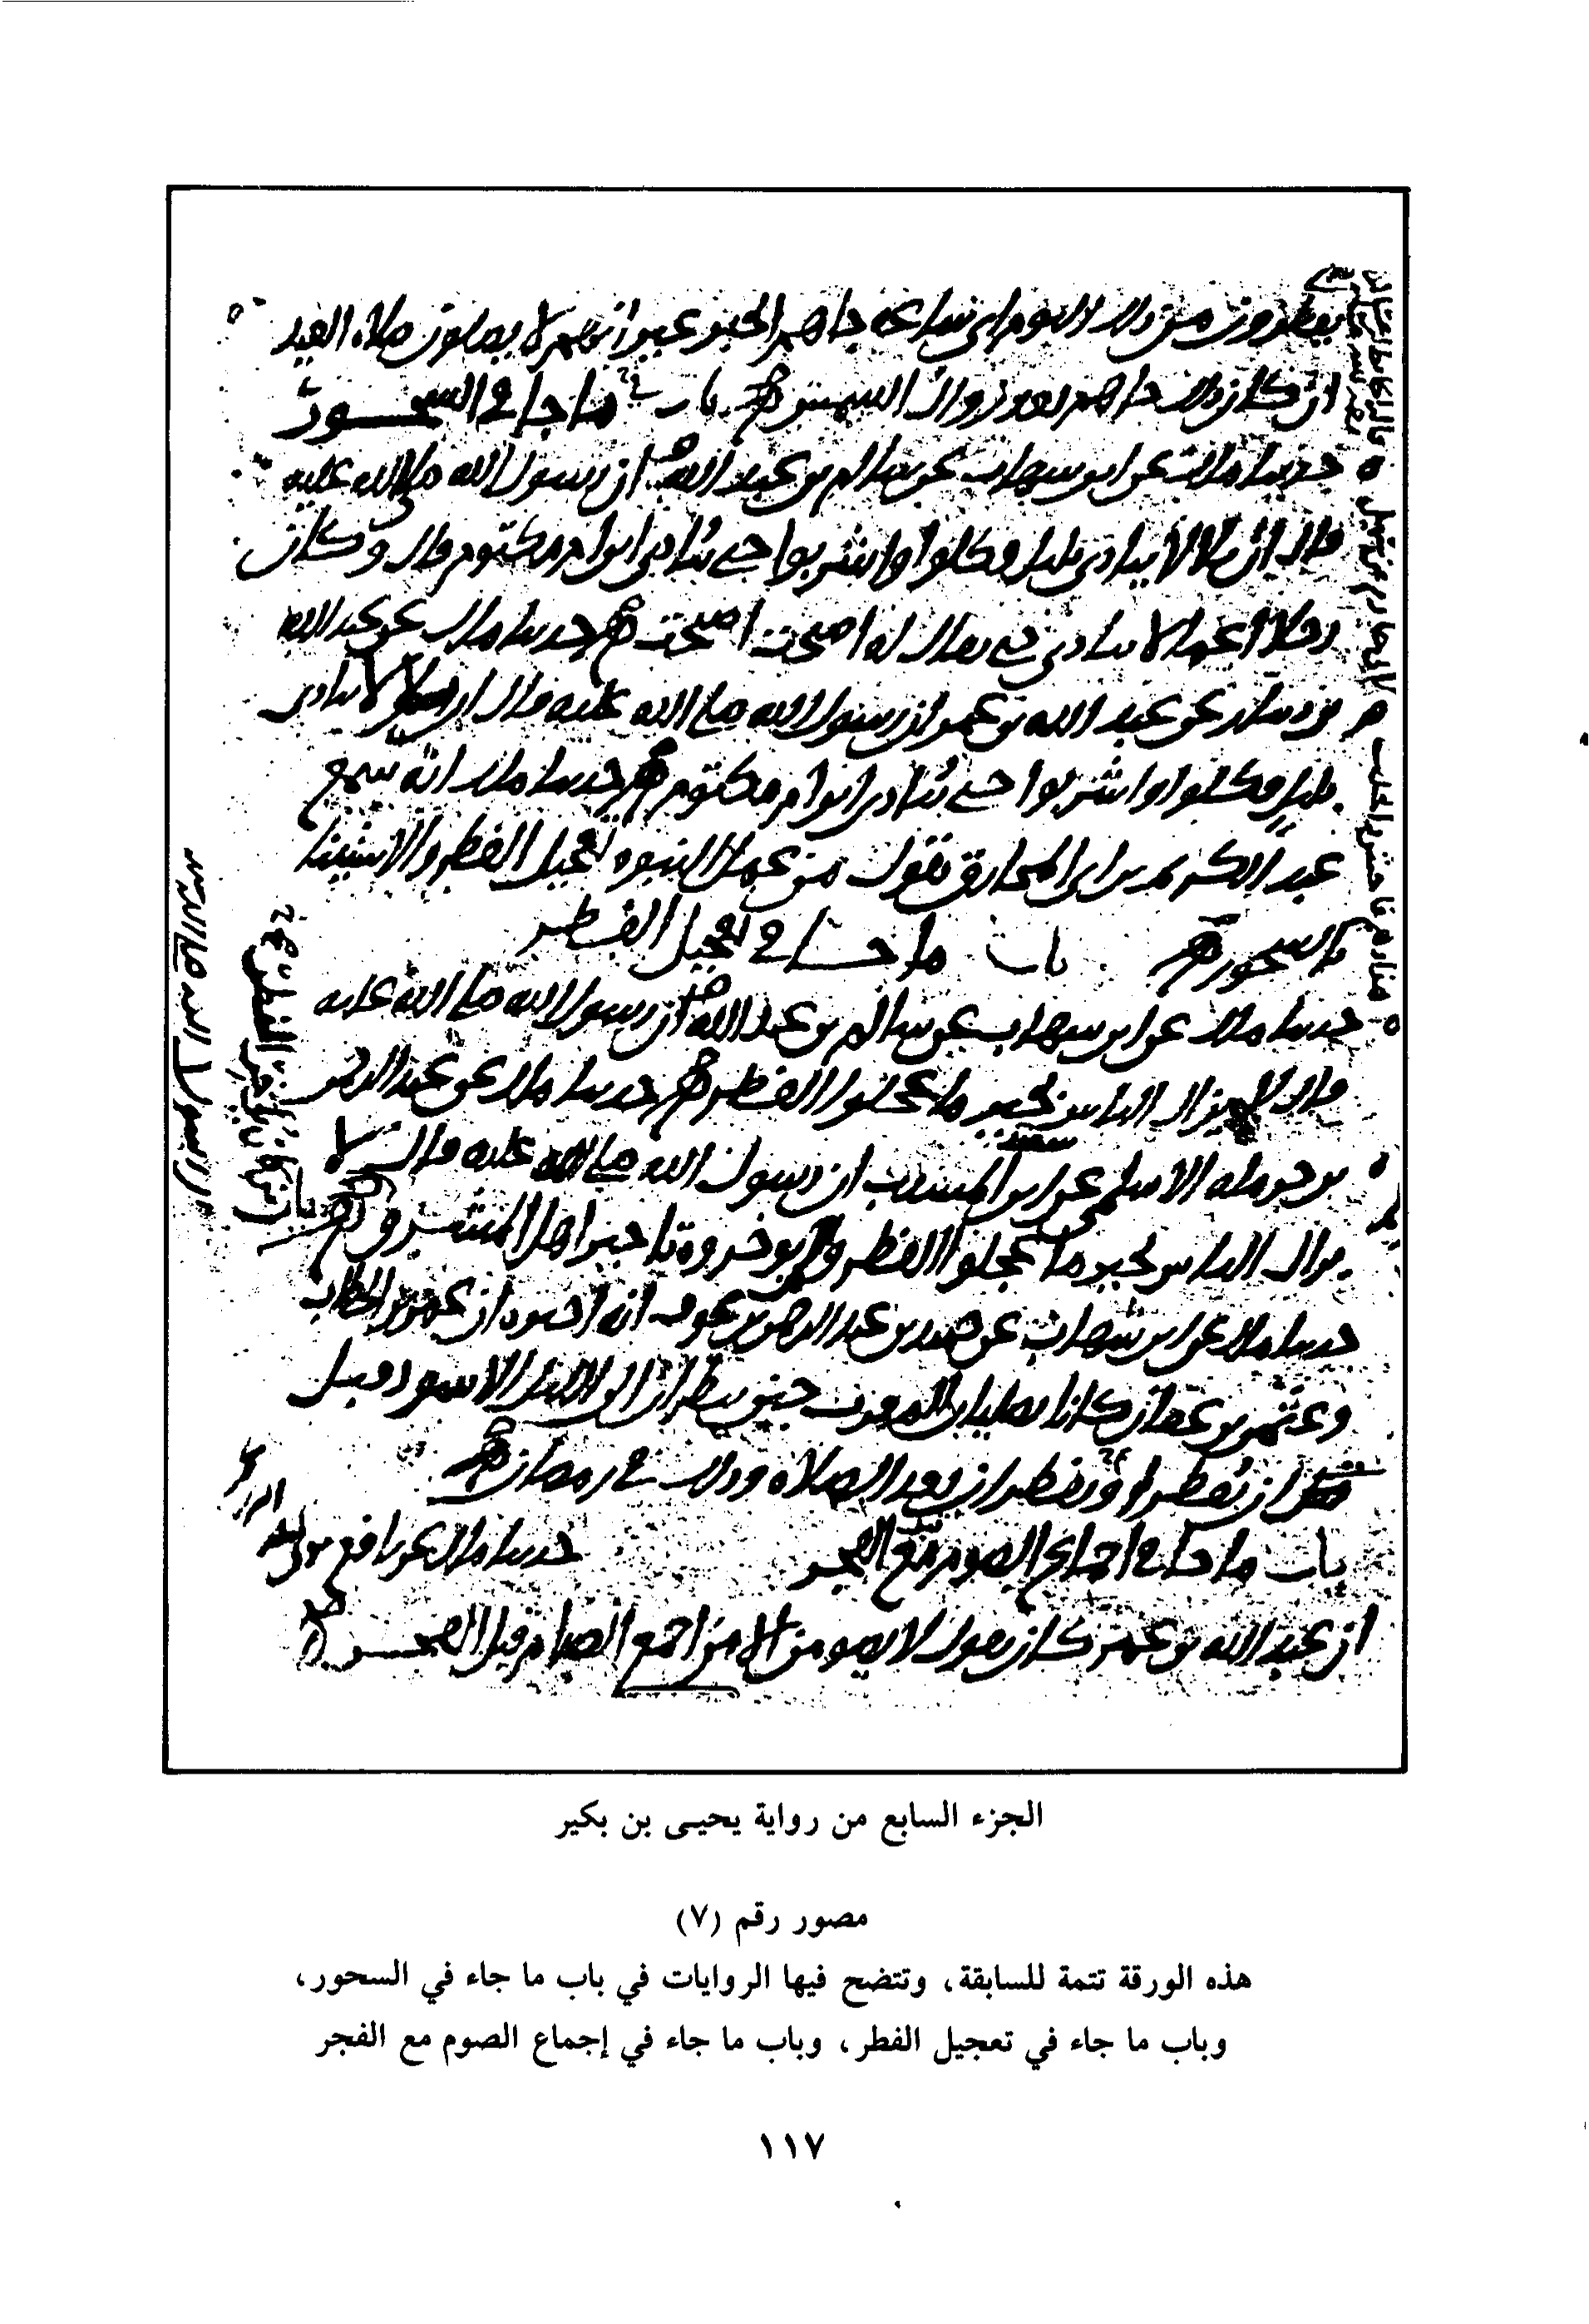 يفطرون من ذلك اليوم اي ساعة جاهم الخبر غير انهم لا يصلون صلاة العيد
ان كان ذلك جاهم بعد زوال الشمس باب ما جا في السحور
حدثنا ملك عن ابن شهاب عن سالم بن عبد الله ان رسول الله صلى الله عليه
قال ان بلالا ينادي بليل فكلوا واشربوا حتى ينادي ابن ام مكتوم قال وكان
رجلا اعمى لا ينادي حتى يقال له اصبحت اصبحت حدثنا ملك عن عبد الله
بن دينار عن عبد الله بن عمر ان رسول الله صلى الله عليه قال ان بلالا ينادي
بليل فكلوا واشربوا حتى ينادي ابن ام مكتوم حدثنا ملك انه سمع
عبد الكريم بن ابي المخارق يقول من عمل النبوة تعجيل الفطر والاستينا
بالسحور باب ما جا في تعجيل الفطر
حدثنا ملك عن ابن شهاب عن سالم بن عبد الله ان رسول الله صلى الله عليه
قال لا يزال الناس بخير ما عجلوا الفطر حدثنا ملك عن عبد الرحمن
بن حرملة الاسلمي عن ابن المسيب ان رسول الله صلى الله عليه قال لا
يزال الناس بخير ما عجلوا الفطر ولم يوخروه تاخير اهل المشرق
حدثنا ملك عن ابن شهاب عن حميد بن عبد الرحمن بن عوف انه اخبره ان عمر بن الخطاب
وعثمن بن عفان كانا يصليان المغرب حين ينظران الى الليل الاسود قبل
ان يفطرا ويفطران بعد الصلاة وذلك في رمضان
باب ما جا في اجماع الصوم مع الفجر حدثنا ملك عن نافع
ان عبد الله بن عمر كان يقول لا يصوم من الا من اجمع الصيام قبل الفجر
الجزء السابع من رواية يحيى بن بكير
مصور رقم (٧)
هذه الورقة تتمة للسابقة، وتتضح فيها الروايات في باب ما جاء في السحور،
وباب ما جاء في تعجيل الفطر، وباب ما جاء في إجماع الصوم مع الفجر
١١٧